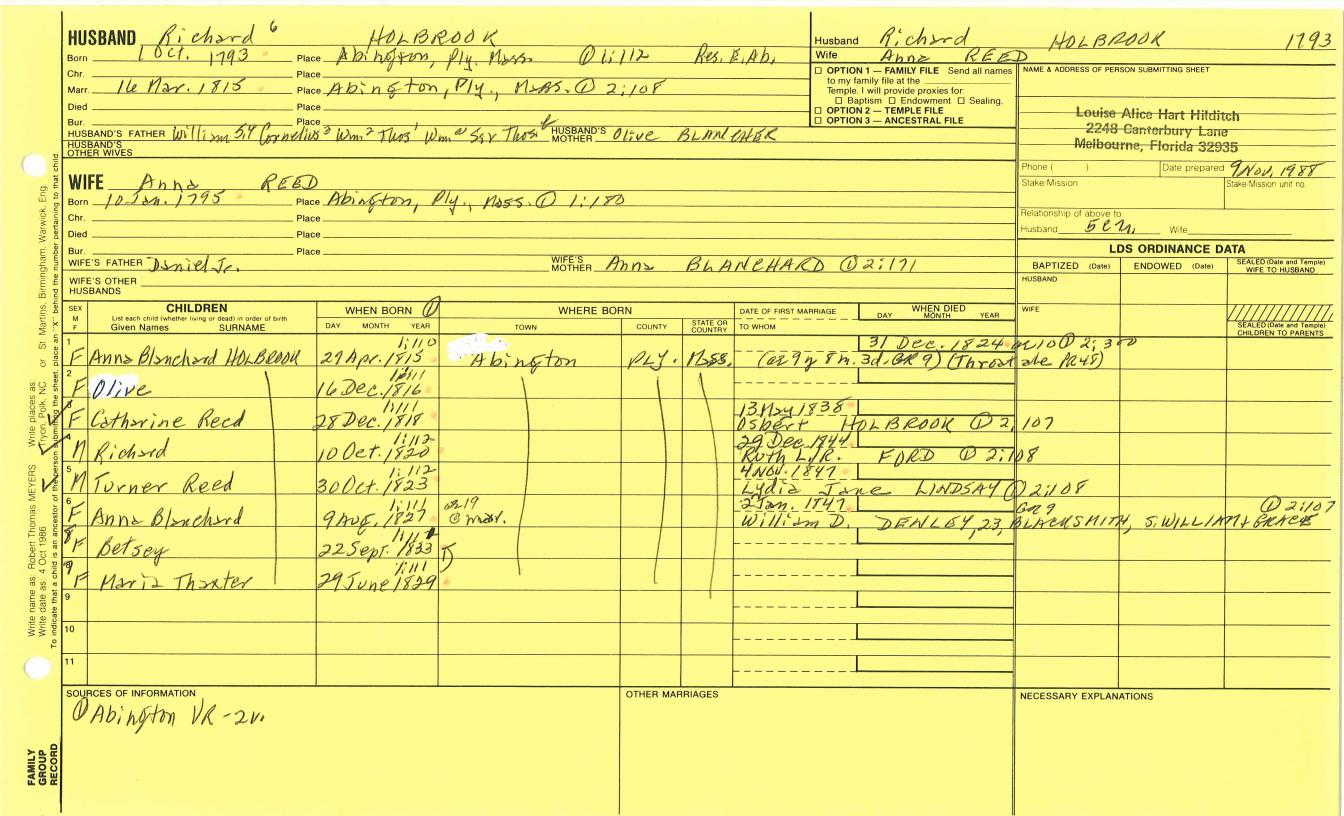 HUSBAND Richard 6 HOLBROOK
Born 1 Oct. 1793 Place Abington, Ply. Mass ① 1:112 Res. E. Ab.
Chr. Place
Marr. 16 Mar. 1815 Place Abington, Ply., Mass. ① 2:108
Died Place
Bur. Place
HUSBAND'S FATHER William 5,4 Cornelius 3 Wm 2 Thos 1 HUSBAND'S MOTHER Olive BLANCHER
HUSBAND'S OTHER WIVES
Husband Richard HOLBROOK 1793
Wife Anna REED
☐ OPTION 1 — FAMILY FILE Send all names
to my family file at the
Temple. I will provide proxies for
☐ Baptism ☐ Endowment ☐ Sealing.
☐ OPTION 2 — TEMPLE FILE
☐ OPTION 3 — ANCESTRAL FILE
NAME & ADDRESS OF PERSON SUBMITTING SHEET
Louise Alice Hart Hilditch
2248 Canterbury Lane
Melbourne, Florida 32935
Phone ( ) Date prepared 9 Nov, 1988
Stake/Mission Stake/Mission unit no.
Relationship of above to
Husband 5 c Wife
WIFE Anna REED
Born 10 Jan. 1795 Place Abington, Ply., Mass. ① 1:180
Chr. Place
Died Place
Bur. Place
WIFE'S FATHER Daniel Jr. WIFE'S MOTHER Anna BLANCHARD ① 2:171
WIFE'S OTHER HUSBANDS
LDS ORDINANCE DATA
BAPTIZED (Date) ENDOWED (Date) SEALED (Date and Temple) WIFE TO HUSBAND
HUSBAND
WIFE
SEALED (Date and Temple) CHILDREN TO PARENTS
SEX M F
CHILDREN
List each child (whether living or dead) in order of birth
Given Names SURNAME
WHEN BORN ①
DAY MONTH YEAR
WHERE BORN
TOWN COUNTY STATE OR COUNTRY
DATE OF FIRST MARRIAGE
TO WHOM
WHEN DIED
DAY MONTH YEAR
1 1:110 31 Dec. 1824 ① 2:300
F Anna Blanchard HOLBROOK 29 Apr. 1815 Abington PLY. Mass. (ae 9 y 8 m. 3d. GR 9) (Throat ale PR48)
2 1:111
F Olive 16 Dec. 1816
1:111 13 May 1838
F Catharine Reed 28 Dec. 1818 Osbert HOLBROOK ① 2:107
1:112 29 Dec 1844
M Richard 10 Oct. 1820 Ruth L. R. FORD ① 2:108
5 1:112 4 Nov. 1847
M Turner Reed 30 Oct. 1823 Lydia Jane LINDSAY ① 2:108
6 1:111 ae 19 2 Jan. 1847 GR 9 ① 2:107
F Anna Blanchard 9 Aug. 1827 @ mar. William D. DENLEY, 23, BLACKSMITH, S. WILLIAM + GRACE
8 1:111
F Betsey 22 Sept. 1833
1:111
F Maria Thaxter 29 June 1829
9
10
11
SOURCES OF INFORMATION
① Abington VR - 2v.
OTHER MARRIAGES
NECESSARY EXPLANATIONS
Write name as: Robert Thomas MEYERS Write places as: Tryon, Polk, NC or St Martins, Birmingham, Warwick, Eng.
Write date as: 4 Oct 1986
To indicate that a child is an ancestor of the person submitting the sheet, place an "X" behind the number pertaining to that child
FAMILY GROUP RECORD